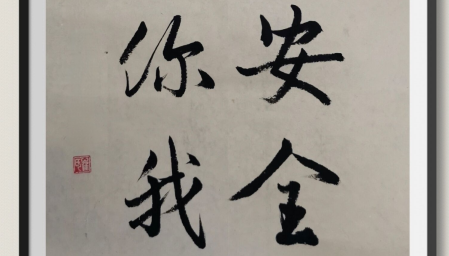 安全
你我